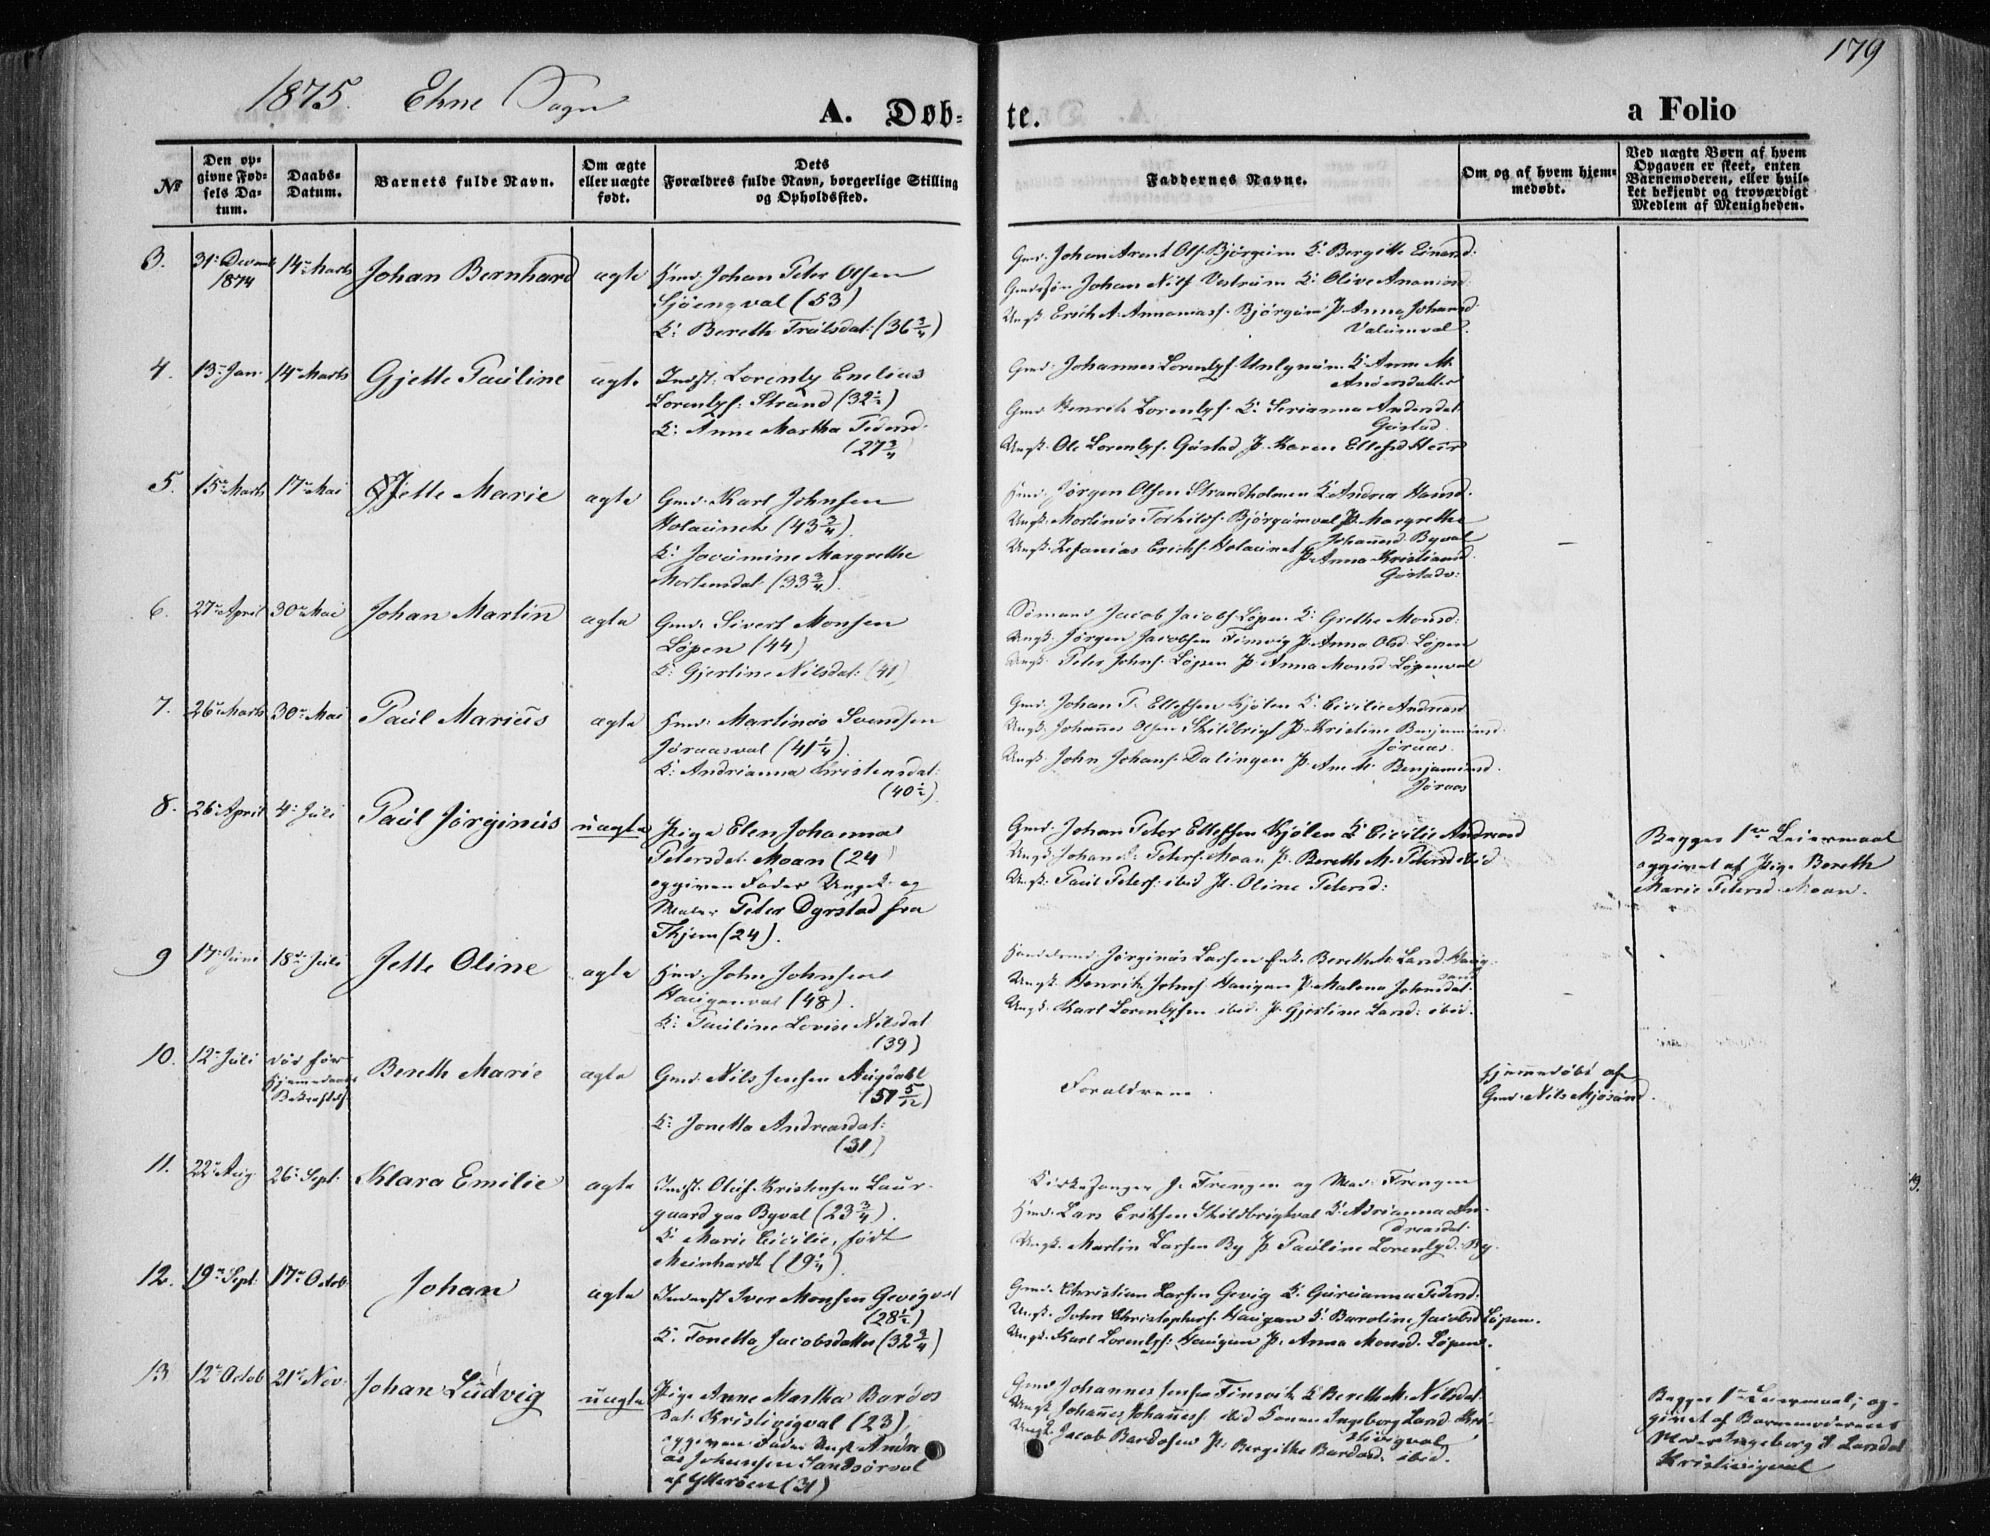 179
1875. Ekne Sogn
A. Døb-
te.
a Folio
№
Den op-
givne Fød-
sels Da-
tum.
Daabs-
Datum.
Barnets fulde Navn.
Om ægte
eller uægte
født.
Dets
Forældres fulde Navn, borgerlige Stilling
og Opholdssted.
Faddernes Navne.
Om og af hvem hjem-
medøbt.
Ved uægte Børn af hvem
Opgaven er skeet, enten
Barnemoderen, eller hvil-
ket bekjendt og troværdigt
Medlem af Menigheden.
3. 31. Decemb 14de Marts Johan Bernhard ægte Hmd. Johan Peter Olsen
1874
(53)
K: Bereth (36 3/4)
Gmd. Johan Arent Ols. Bjørgum K. Bergitte
Gmdssøn Johan Nils. K. Olive
Ungk. Erich A. Annanias. P. Anna Johansd
4. 13de Jan. 14de Marts Gjette Pauline ægte Indst. Lorents Emelius
Lorentzs. Strand (32 1/2)
K. Anne Martha Pedersd.
(27 3/4)
Gmd. Johannes Lorentzs. K. Anne M.
Andersdatter
Gmd. Henrik Lorentzs. K. Serianna Andersdat
Gustad
Ungk. Ole Lorentzs. Gustad P. Karen
5. 15de Marts 17de Mai Jette Marie ægte Gmd. Karl Johnsen
Holaunet (43 3/4)
K. Margrethe
Mortensdat. (33 3/4)
Hmd. Jørgen Olsen Strandholmen K. Andrea Hansd.
Ungk. Mortinus P. Margrethe
Johannesd. Byval
Ungk. Zefanias Erichs. Holaunet P. Anna Kristiansd
6. 27de April 30de Mai Johan Martin ægte Gmd. Sivert Monsen
Løpen (44)
K. Gjertine Nilsdat. (41)
Sømand Jacob Jacobs. Løpen K. Grethe Monsd.
Ungk. Jørgen Jacobsen P. Anna Olsd Løpen
Ungk. Peter Johns. Løpen P. Anna Monsd. Løpenval
7. 26de Marts 30de Mai Paul Marius ægte Hmd. Martinus Svendsen
Jøraasval (41 1/4).
K. Andrianna Kristensdat.
(40 1/2)
Gmd. Johan P. Ellefsen Kjølen K. Cicilie Andreasd
Ungk. Johannes Olsen P. Kristine Benjaminsd.
Jøraas.
Ungk. John Johans. Dalingen P. Ane M. Benjaminsd.
Jøraas
8. 26de April 4de Juli Paul Jørginus uægte Pige Elen Johanna
Petersdat. Moan (24)
opgiven Fader Ungk. og
Maler Peter Dyrstad fra
(24).
Gmd. Johan Peter Ellefsen Kjølen K. Cicilie Andreasd
Ungk. Johan Peters. Moan P. Bereth M. Petersd ibid
Ungk. Paul Peters. ibid P. Oline Petersd.
Begges 1ste Leiermaal
opgivet af Pige Bereth
Marie Petersd. Moan.
9 17de Juni 18de Juli Jette Oline ægte Hmd. John Johnsen
Haugenval (48).
K. Pauline Lovise Nilsdat
(39)
Jørginus Larsen Enke Bereth M. Larsd.
Ungk. Henrik Johns. Haugan P. Malena Johnsdat.
Ungk. Karl Lorentzsen ibid. P. Gjertine Larsd. ibid.
10. 12de Juli død før
Hjemmedaabs
Bekræftelse
Bereth Marie ægte Gmd. Nils Jensen Augdahl
(51 5/12)
K. Jonetta Andreasdat.
(31)
Forældrene.
Hjemmedøbt af
Gmd. Nils Mjøsund.
11. 22de Aug. 26de Sept. Klara Emilie ægte Indst. Oluf Kristensen Laur-
gaard paa Byval (23 3/4).
K. Marie Cicilie, født
Meinhardt (19 1/4).
Kirkesanger J. Frengen og Mad. Frengen
Hmd. Lars Eriksen K. Adrianna An-
dreasdat.
Ungk. Martin Larsen By P. Pauline Lorentzd. By.
12. 19de Sept. 17de Octob. Johan ægte Inderst Iver Monsen Gevigval
(28 1/2)
K. Fonetta Jacobsdatter (32 3/4)
Gmd. Christian Larsen Gevig K. Gurianna Pedersd.
Ungk. John Christophers. Haugan K. Beroline Jacobsd Løpen.
Ungk. Karl Lorentzs. Haugan P. Anna Monsd. Løpen.
13 12te Octob 21de Nov. Johan Ludvig uægte Pige Anne Martha Bardos
dat. Kristivigval (23)
opgiven Fader Ungk. Andre
as Johansen Sandsørval
af Ytterøen (31)
Gmd. Johannes Jensen K. Bereth M. Nilsdat.
Ungk. Johannes Johannes. ibid Ingeborg Larsd. Kri-
stivigval
Ungk. Jacob Bardosen P. Bergitte Bardosd. ibid.
Begges 1ste Leiermaal; op-
givet af Barnemoderens
Moder Ingeborg Larsdat
Kristivigval